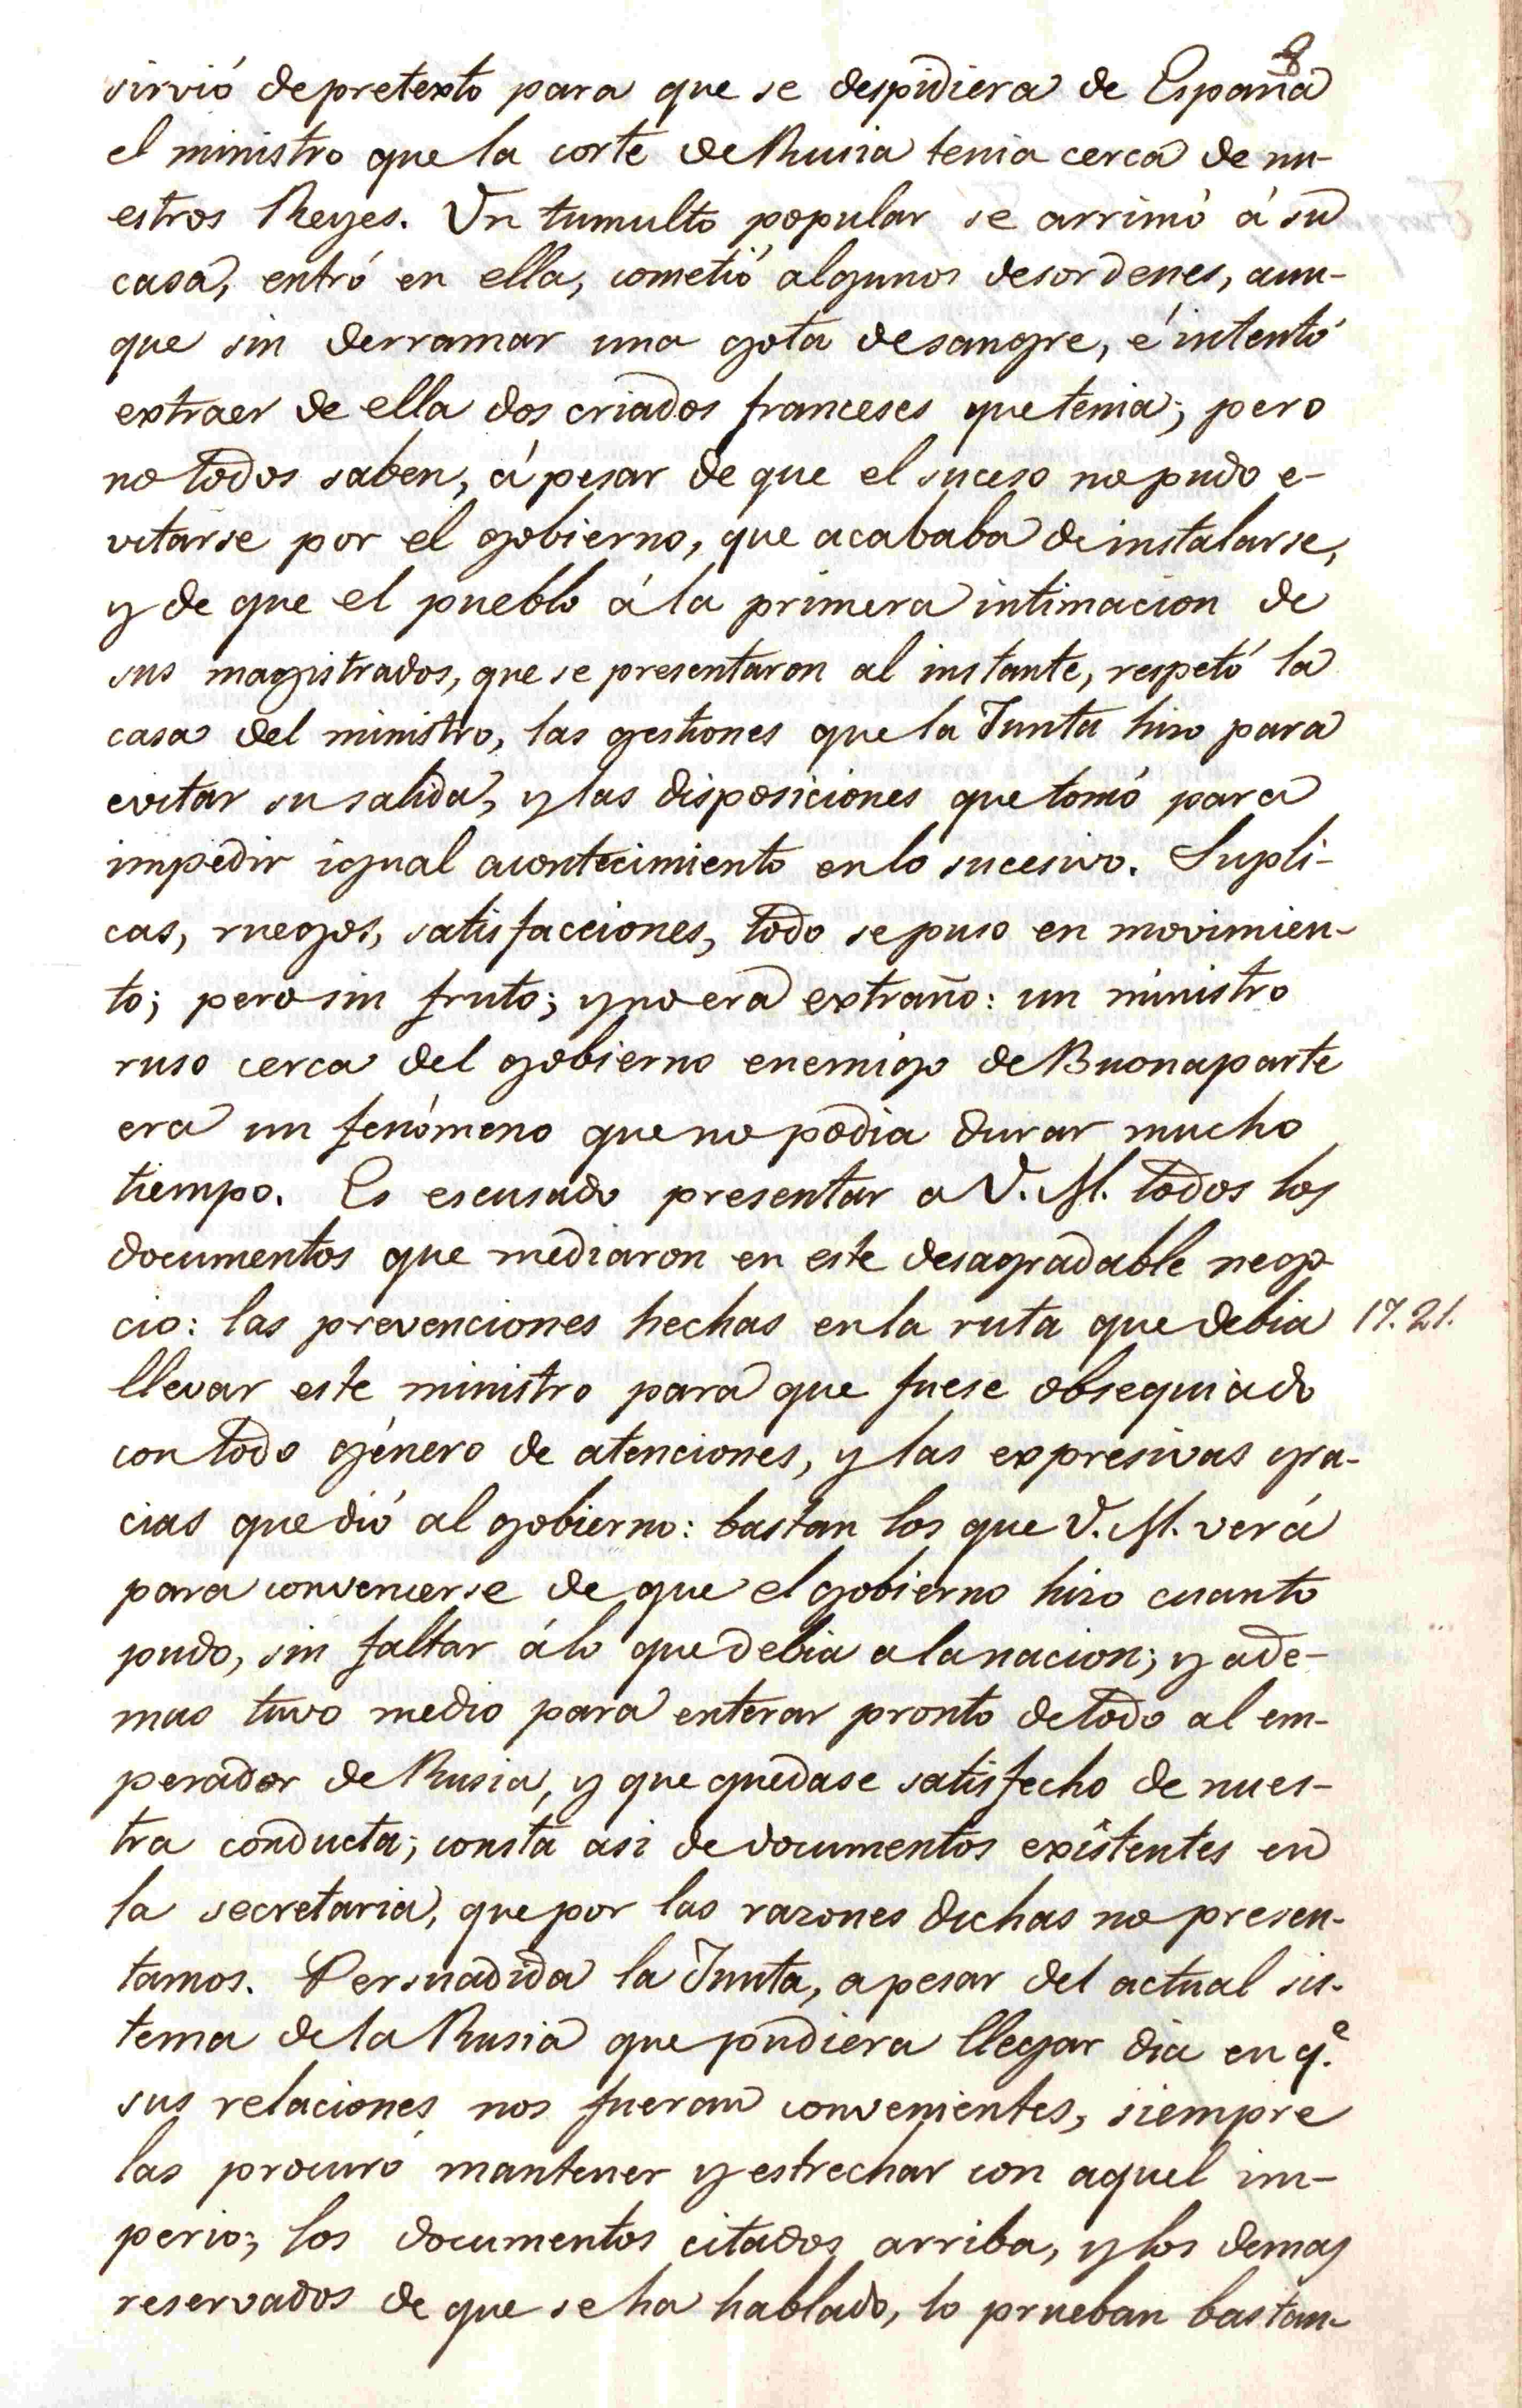 8
sirvió de pretexto para que se despidiera de España
el ministro que la corte de Rusia tenia cerca de nu-
estros Reyes. Un tumulto popular se arrimó á su
casa, entró en ella, cometió algunos desordenes, aun-
que sin derramar una gota de sangre, é intentó
extraer de ella dos criados franceses que tenia; pero
no todos saben, á pesar de que el suceso no pudo e-
vitarse por el gobierno, que acababa de instalarse,
y de que el pueblo á la primera intimacion de
sus magistrados, que se presentaron al instante, respetó la
casa del ministro, las gestiones que la Junta hizo para
evitar su salida, y las disposiciones que tomó para
impedir igual acontecimiento en lo sucesivo. Supli-
cas, ruegos, satisfacciones, todo se puso en movimien-
to; pero sin fruto; y no era extraño: un ministro
ruso cerca del gobierno enemigo de Buonaparte
era un fenómeno que no podia durar mucho
tiempo. Es escusado presentar a V. M. todos los
documentos que mediaron en este desagradable nego-
cio: las prevenciones hechas en la ruta que debia 17. 21.
llevar este ministro para que fuese obsequiado
con todo género de atenciones, y las expresivas gra-
cias que dió al gobierno: bastan los que V. M. verá
para convencerse de que el gobierno hizo cuanto
pudo, sin faltar á lo que debia a la nacion; y ade-
mas tuvo medio para enterar pronto de todo al em-
perador de Rusia, y que quedase satisfecho de nues-
tra conducta; consta asi de documentos exîstentes en
la secretaria, que por las razones dichas no presen-
tamos. Persuadida la Junta, a pesar del actual sis-
tema de la Rusia que pudiera llegar dia en q.e
sus relaciones nos fueran convenientes, siempre
las procuró mantener y estrechar con aquel im-
perio; los documentos citados arriba, y los demas
reservados de que se ha hablado, lo prueban bastan-